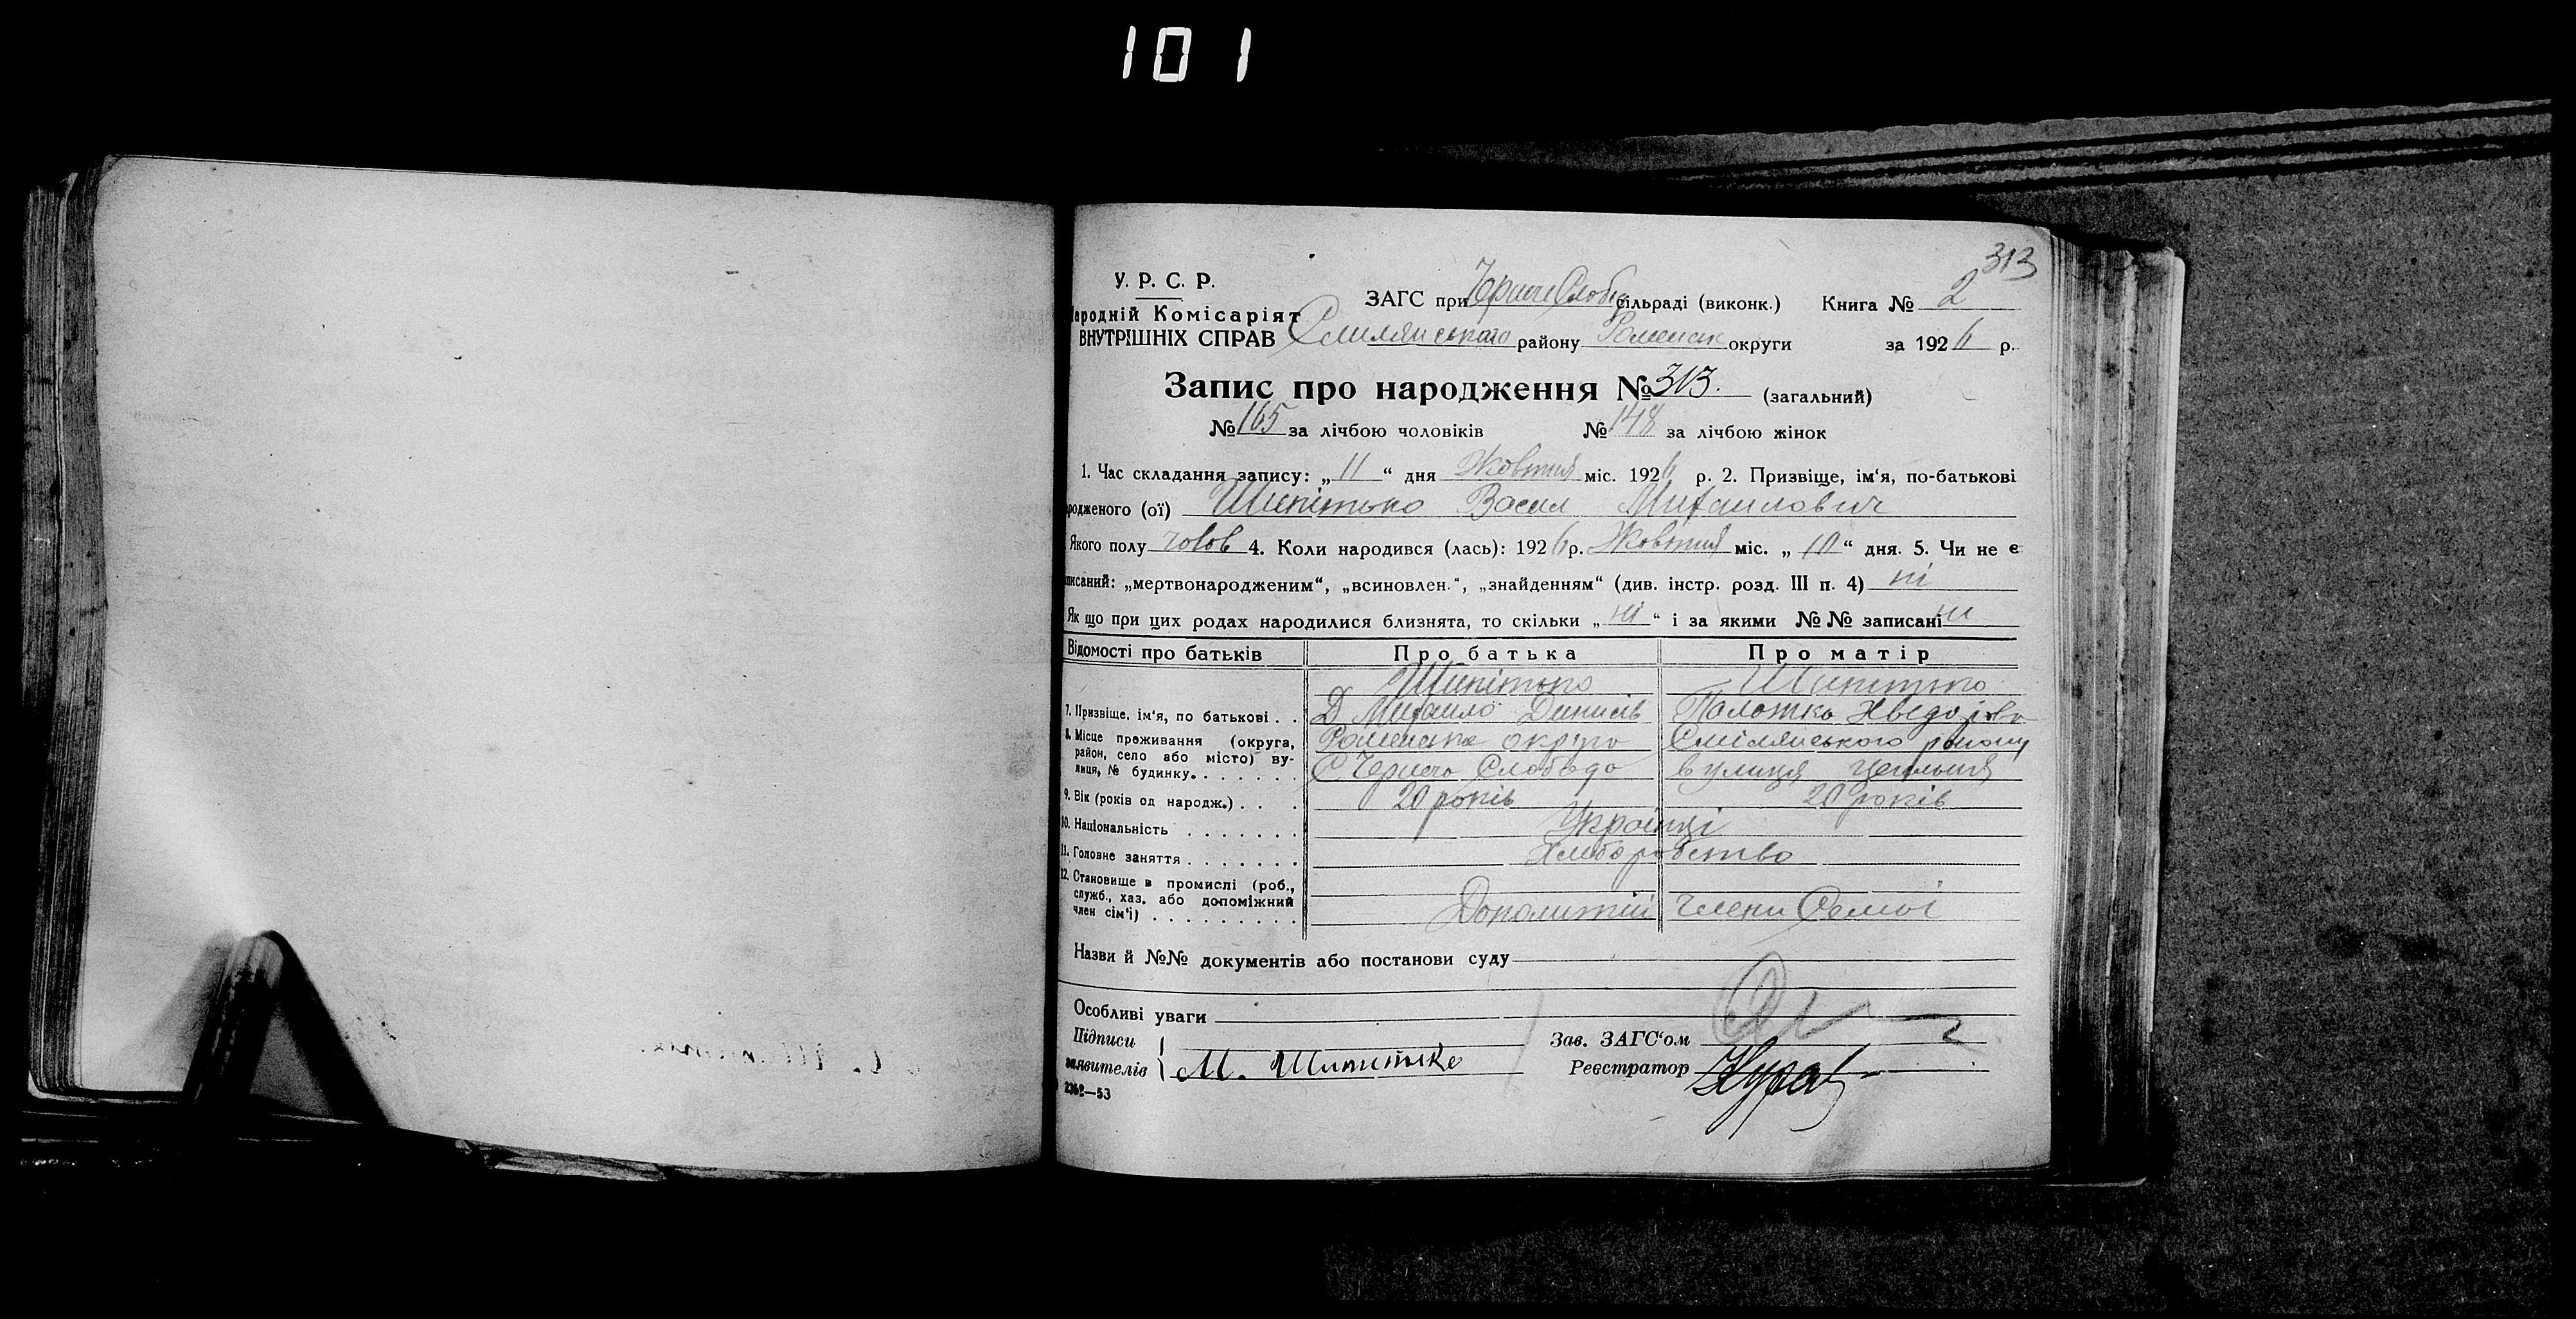 101
313
У. Р. С. Р.
Народній Комісаріят
ВНУТРІШНІХ СПРАВ
ЗАГС при Чернечо Слобід сільраді (виконк.) Книга № 2
Смилянського району Роменськ округи за 1926 р.
Запис про народження № 313. (загальний)
№ 165 за лічбою чоловіків № 148 за лічбою жінок
1. Час складання запису: „ 11 “ дня Жовтня міс. 1926 р. 2. Призвіще, ім‘я, по-батькові
родженого (ої) Шипітько Васил Михаилович
Якого полу чолов 4. Коли народився (лась): 1926 р. Жовтня міс. „ 10 “ дня. 5. Чи не є
писаний: „мертвонародженим“, „всиновлен.“, „знайденням“ (див. інстр. розд. III п. 4) ні
Як що при цих родах народилися близнята, то скільки „ ні “ і за якими №№ записані ні
Відомості про батьків Про батька Про матір
Шипітько Шипітько
7. Призвіще, ім‘я, по батькові . . Михаило Денисів
8. Місце проживання (округа, Роменська округа Смілянського району
район, село або місто) ву-
лиця, № будинку. С Чернеча Слобода вулиця
9. Вік (років од народж.) . . . 20 років 20 років
10. Національність Українці
11. Головне заняття Хлеборобство
12. Становище в промислі (роб.,
служб., хаз. або допоміжний
член сім‘ї) члени Семьі
Назви й №№ документів або постанови суду
Особливі уваги
Підписи Зав. ЗАГС‘ом
заявителів М. Шипітько Реєстратор